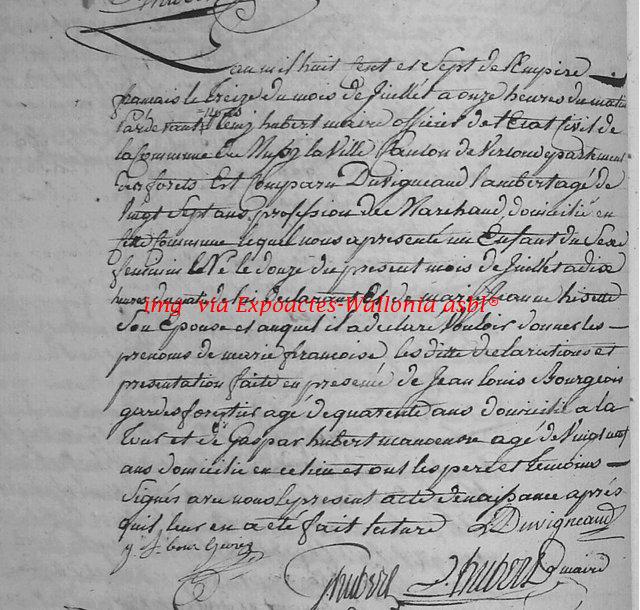 L'an mil huit cent et sept de l'Empire
francais le treize du mois de Juillet a onze heures du matin
Pardevant nous hubert maire officier de l'Etat Civil de
la Commune de la Ville Canton de Virton departement
des forets Est Comparu Duvigneaud Lambert agé de
Vingt Sept ans, profession de Marchand, domicilié en
cette Commune lequel nous a presenté un Enfant du Sexe
feminin Né le douze du present mois de Juillet a dix
heures du matin de lui declarant Et de marie Jeanne
img via Expoactes-Wallonia asbl®
Son Epouse et auquel il a declaré Vouloir donner les
prenoms de marie francoise les ditte declarations et
presentation faite en presence de Jean Louis Bourgeois
garde forestier agé de quarente ans domicilié a la
tour et de Gaspar hubert manoeuvre agé de Vingt neuf
ans domicilié en ce lieu et ont les pere et temoins
Signés avec nous le present acte de naissance aprés
quil leur en a été fait lecture Duvigneaud
j l bourgeois
ghubert hubert maire